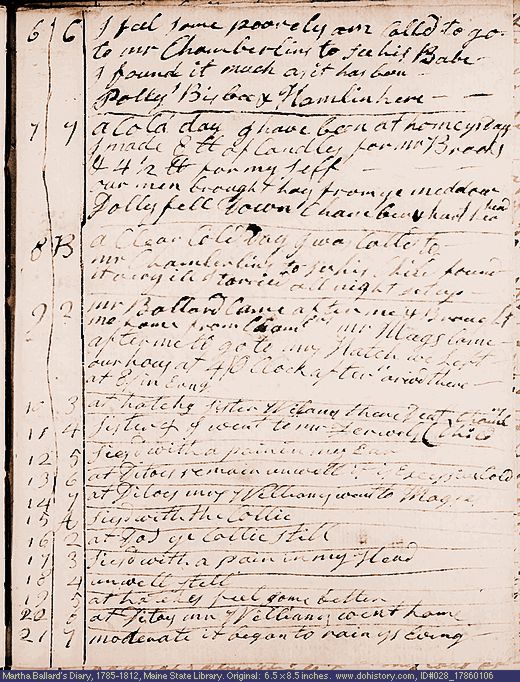 6 6 I feel some poorely am Calld to go
to mr Chamberlins to see his Babe
I found it much as it has been
Polly Bisbe & Hamlin here
7 7 a Cold day I have been at home
I made 8 lb of Candles for mr Brooks
& 4 1/2 lb for my self
our men brought hay from ye meddow
Dolly fell Down Chamber & hurt
8 B a Clear Cold Day I was Calld to
mr Chamberlins to see his Child found
it very ill I tarried all night set up
9 2 mr Ballard Came after me & Brout
me home from Chamb mr came
after me to go to my Hatch we left
our hous at 4 O Clock after arivd there
at 8 in Evng
10 3 at hatchs Sister Williams there
11 4 Sister & I went to mr Child
12 5 Siezd with a pain in my Ear
13 6 at Ditoes remain unwell Excessive Cold
14 7 at Ditoes mrs Williams went to
15 B Siezd with the Collic
16 2 at Do ye Collic still
17 3 Siezd with a pain in my Head
18 4 unwell still
19 5 at hatches feel some better
20 6 at Ditos mr Williams went home
21 7 moderate it began to rain ys Evng
Martha Ballard's Diary, 1785-1812, Maine State Library. Original: 6.5 x 8.5 inches. www.dohistory.com, ID#028_17860106